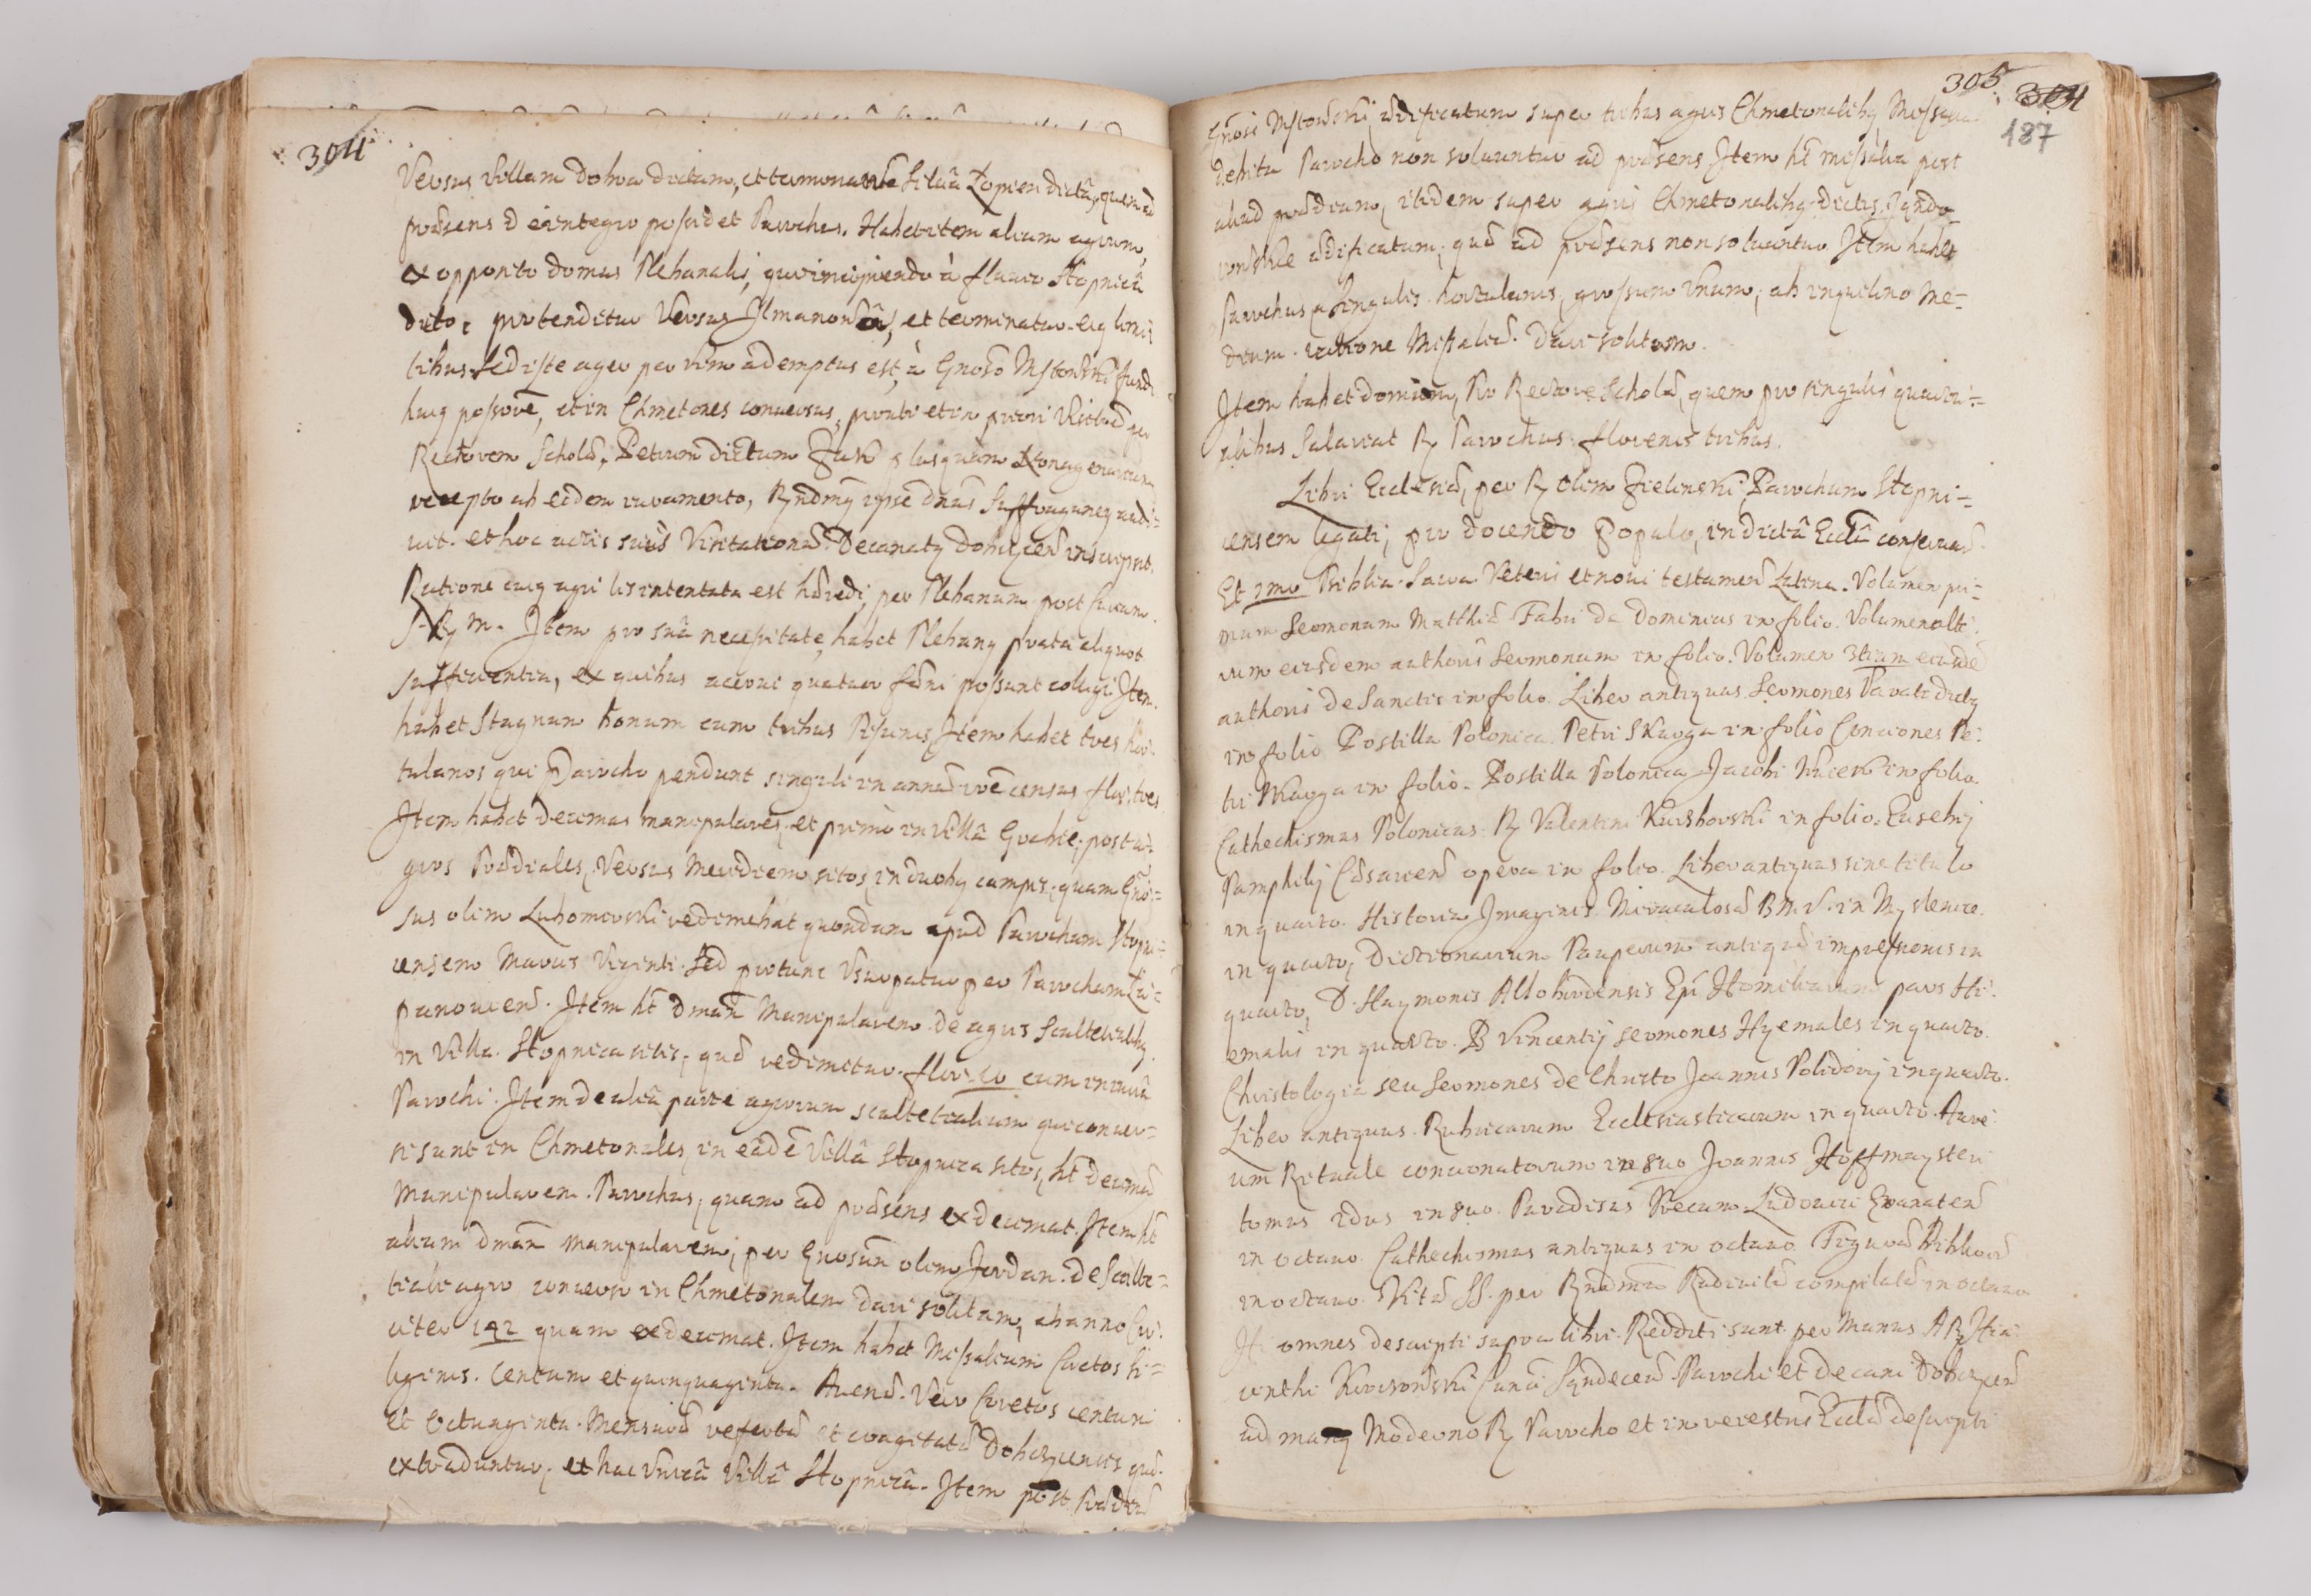 304
Versus Villam Dobra dictam, et terminatur Silvâ Łopien dictâ, quem ad
præsens ex integro possidet Parochus. Habet item alium agrum,
ex opposito domus Plebanalis, qui incipiendo à fluvio Stopnica
dicto, protenditur Versus Jlmanovâ, et terminatur eiq limi
tibus. Sed iste ager per vim ademptus est, à Gnoso Mstowski fundi
huiq possorē, et in Chmetones conversus, prout et in priori Visitaõe per
Rectorem Scholæ, Petrum dictum plusquam Nonagenarium
recepto ab eodem iuramento, Rndmq ipse Dnus Suffraganeq audi-
uit. et hoc actis suis Visitationũ Decanatq Dobcycen inscripsit.
Ratione cuiq agri lis intentata est hæredi, per Plebanum post Curam
S. R. M. Jtem pro suâ necessitate, habet Plebanq prata aliquot
sufficientia, ex quibus acervi quatuor fœni possunt colligi. Jtem
habet Stagnum bonum cum tribus Piscinis Jtem habet tres hor-
tulanos qui Parocho pendunt singuli in annũ censũs flor. tres
Jtem habet decimas manipulares, et primò in Villâ Gruszec, post a-
gros Prædiales, Versus Meridiem sitos, in duobq campis, quam Gno-
sus olim Lubomirski redimebat quondam apud Parochum Stopni-
censem Marcis Viginti. Sed pro tunc Usurpatur per Parochum Li-
panovicen. Jtem ht Dmam Manipularem de agris Scultetialibq
in Villa Stopnica sitis, quæ redimitur flor. 10 cum iniuriâ
Parochi. Jtem de aliâ parte agrorum scultetialium qui conver-
si sunt in Chmetonales, in eâdē Villâ Stopnica sitos, ht decimã
Manipularem Parochus, quam ad præsens exdecimat. Jtem ht
aliam dmam manipularem, per Gnosum olim Jordan. de Sculte-
tiali agro converso in Chmetonalem dari solitam, ab anno Cir-
citer 142 quam exdecimat. Jtem habet Missalium Coretos si-
liginis. Centum et quinquaginta. Avenæ. Vero Coretos centum
et Octuaginta. Mensuræ refertæ et coagitatæ Dobcycensis quæ
extraduntur, et hac Unicâ Villâ Stopnicâ. Jtem post Prædiũ
305 304
187
Gnosi Mstowski, ædificatum super tribus agris Chmetonalibq, Missalia
debita Parocho non solvuntur ad præsens Jtem ht missalia post
aliud prædium, itidem super agris Chmetonalibq dictis Jqndo-
ædificatum, quæ ad præsens non solvuntur. Jtem habet
Parochus a singulis hortulanis, grossum Unum, ab inquilino Me-
dium. ratione Missaliũ. Dari solitum.
Jtem habet domum, pro Rectore Scholæ, quem pro singulis quartu-
alibus Salariat R Parochus florenis tribus.
Libri Ecclesiæ, per R olim Zielinski Parochum Stopni-
censem legati, pro docendo Populo, in dictâ Ecclâ conservat.
Et 1mo Biblia Sacra Veteri et novi testamen Latina. Volumen pri-
mum Sermonum Matthiæ Fabri de Dominicis in folio. Volumen alte-
rum eiusdem authoris Sermonum in folio. Volumen 3tium eiusdē
authoris de Sanctis in folio. Liber antiquus Sermones Parati dictq
in folio Postilla Polonica Petri Skarga in folio Conciones Pe-
tri Skarga in folio. Postilla Polonica Jacobi Wuiek in folio.
Cathechismus Polonicus R Valentini Kuczborski in folio. Eusebij
Pamphilij Cæsarien opera in folio. Liber antiquus sine titulo
in quarto. Historia Jmaginis Miraculosæ B. M. V. in Myslenice.
in quarto, Dictionarium Pauperum antiquæ impressionis in
quarto, D. Haymonis Allobirdensis Epi Homiliarum pars Hi-
emalis in quarto. B Vincentij Sermones Hyemales in quarto.
Christologia seu Sermones de Christo Joannis Polidorij in quarto.
Liber antiquus Rubricarum Ecclesiasticarum in quarto. Aure-
um Rituale concionatorum in 8vo Joannis Hoffmaysteri
tomus 2dus in 8vo. Paradisus Precum Ludovici Granaten
in octavo. Cathechismus antiquus in octavo. Figuræ Bibliorũ
in octavo. Vitæ SS. per Rndmũ Radivilũ compilatæ in octavo
Hi omnes descripti supra libri. Redditi sunt per Manus AR Hia-
cinthi Kurowski Canci Sandecen. Parochi et Decani Dobcycen
ad manq Moderno R Parocho et in Ecclæ descripti